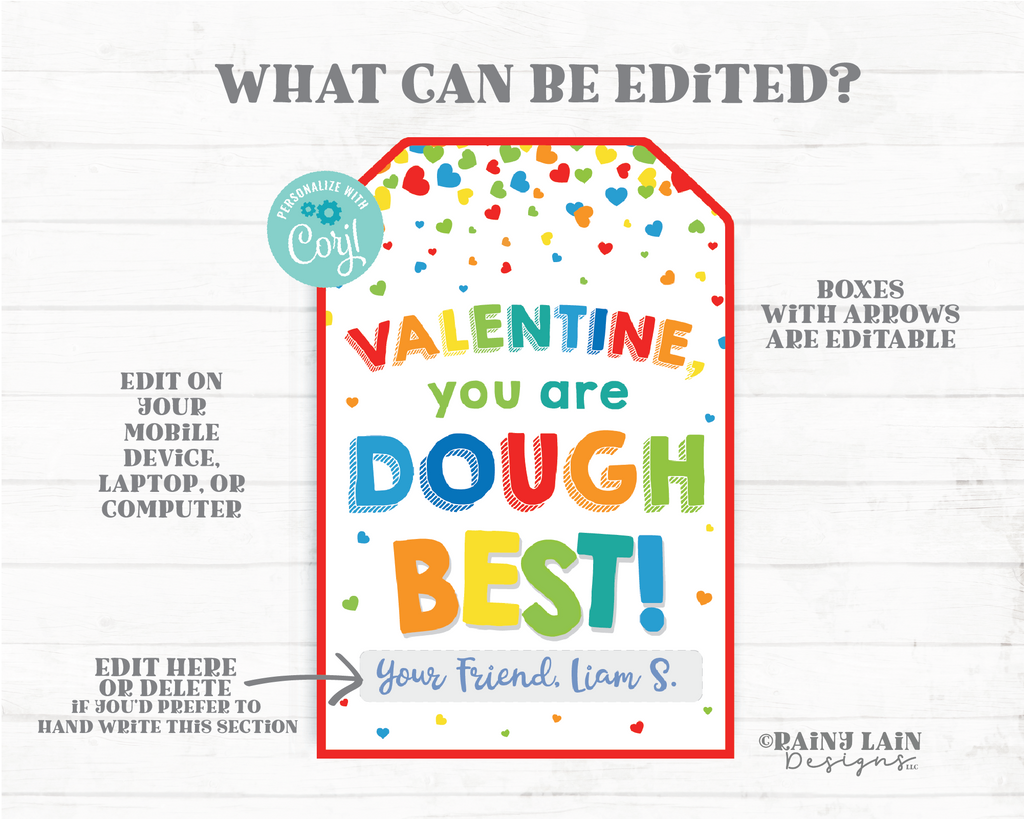 WHAT CAN BE EDiTED?
PERSONALIZE WITH
Corjl
VALENTINE,
you are
DOUGH
BEST!
Your Friend, Liam S.
BOXES
WiTH ARROWS
ARE EDiTABLE
EDIT ON
YOUR
MOBiLE
DEViCE,
LAPTOP, OR
COMPUTER
EDIT HERE
OR DELETE
iF YOU'D PREFER TO
HAND WRiTE THiS SECTiON
©RAINY LAiN
Designs LLC